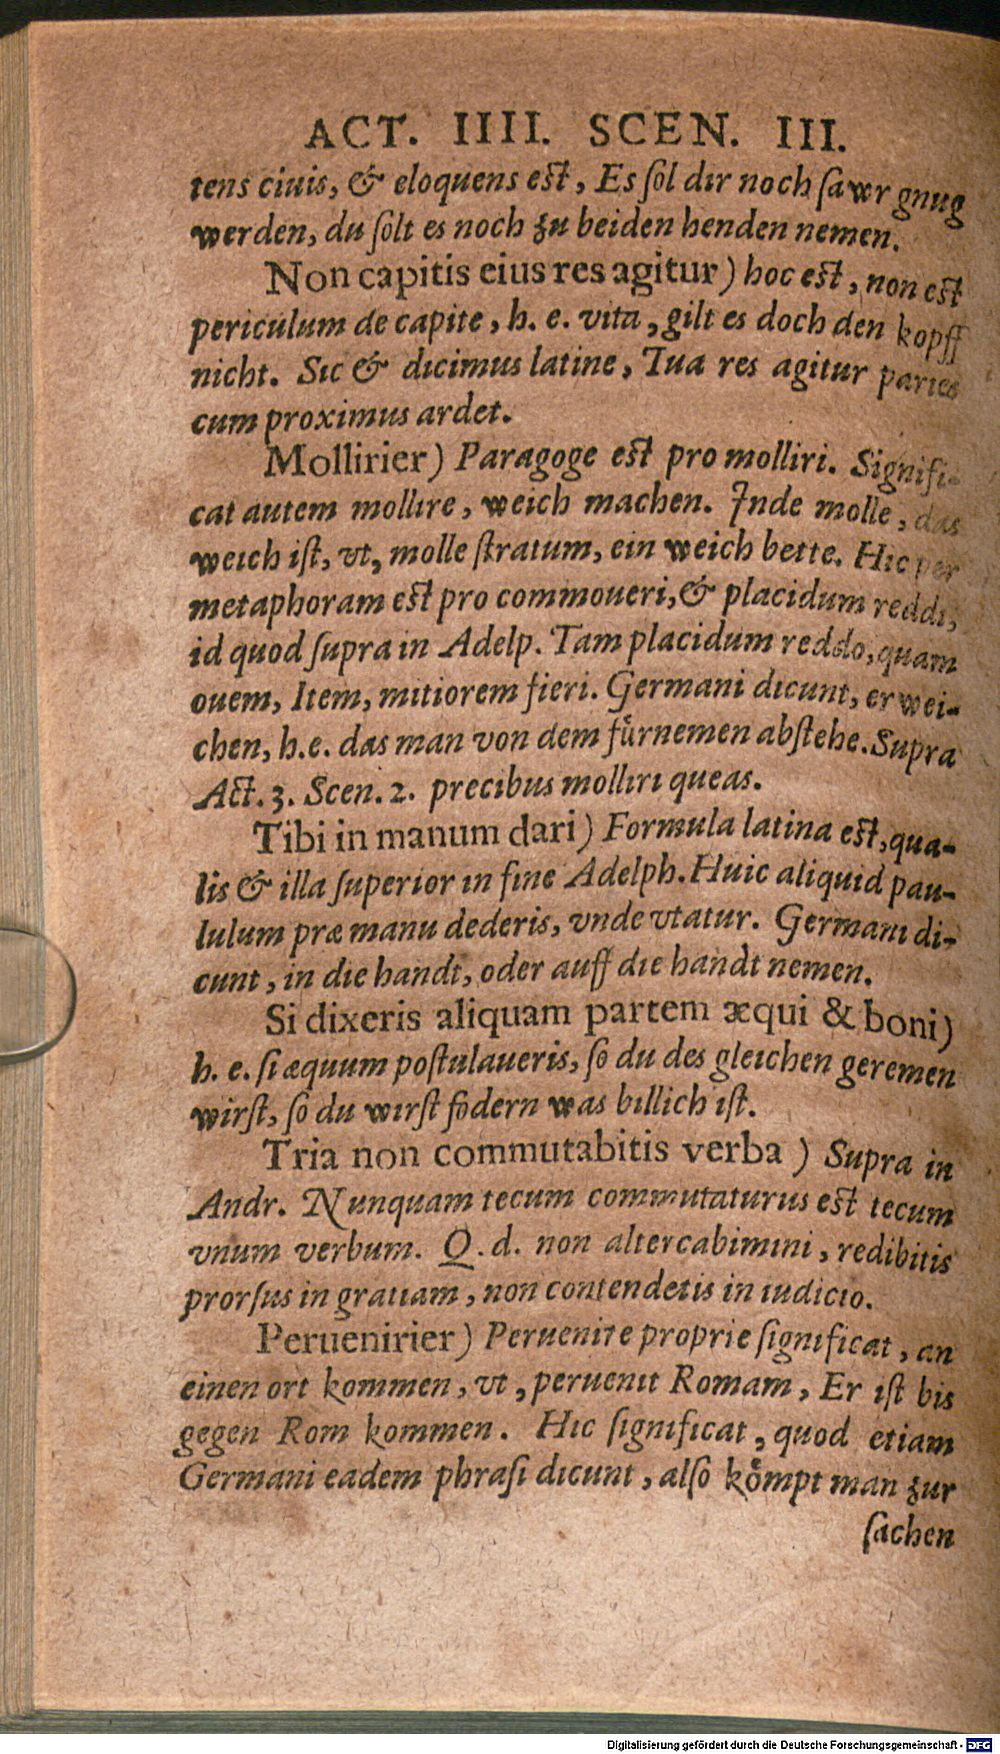 ACT. IIII. SCEN. III.
tens ciuis, & eloquens est, Es ſol dir noch ſawr gnug
werden, du ſolt es noch zu beiden henden nemen.
Non capitis eius res agitur) hoc est, non est
periculum de capite, h. e. vita, gilt es doch den kopff
nicht. Sic & dicimus latine, Tua res agitur paries
cum proximus ardet.
Mollirier) Paragoge est pro molliri. Signifi-
cat autem mollire, weich machen. Inde molle, das
weich iſt, vt, molle ſtratum, ein weich bette. Hic per
metaphoram est pro commoueri, & placidum reddi,
id quod ſupra in Adelp. Tam placidum reddo, quam
ouem, Item, mitiorem fieri. Germani dicunt, erwei-
chen, h.e. das man von dem fuͤrnemen abſtehe. Supra
Act. 3. Scen. 2. precibus molliri queas.
Tibi in manum dari) Formula latina est, qua-
lis & illa ſuperior in fine Adelph. Huic aliquid pau-
lulum præ manu dederis, vnde vtatur. Germani di-
cunt, in die handt, oder auff die handt nemen.
Si dixeris aliquam partem æqui & boni)
h. e. ſi æquum poſtulaueris, ſo du des gleichen geremen
wirſt, ſo du wirſt fodern was billich iſt.
Tria non commutabitis verba) Supra in
Andr. Nunquam tecum commutaturus est tecum
vnum verbum. Q. d. non altercabimini, redibitis
prorſus in gratiam, non contendetis in iudicio.
Peruenirier) Peruenire proprie ſignificat, an
einen ort kommen, vt, peruenit Romam, Er iſt bis
gegen Rom kommen. Hic ſignificat, quod etiam
Germani eadem phraſi dicunt, alſo koͤmpt man zur
ſachen
Digitalisierung gefördert durch die Deutsche Forschungsgemeinschaft - DFG